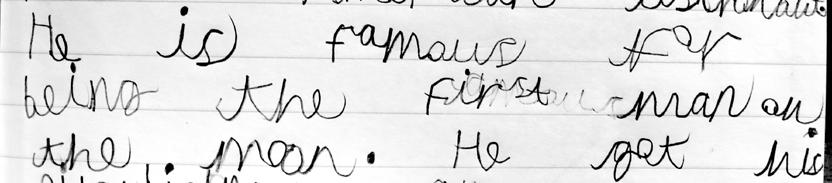 He is famous for
being the first man on
the moon. He get his